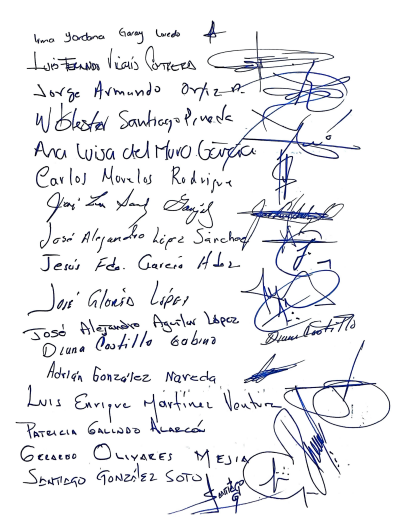 Irma Yordana Garay Loredo
Luis Fernando Vilchis Contreras
Jorge Armando Ortiz R.
Wblester Santiago Pineda
Ana Luisa del Muro García
Carlos Morelos Rodrigue
José Luis
José Alejandro López Sánchez
Jesús Fdo. García Hdez
José Alonso López
José Alejandro Aguilar López
Diana Castillo Gabino Diana Castillo
Adrián González Naveda
Luis Enrique Martínez Ventura
Patricia Galindo Alarcón
Gerardo Olivares Mejia
Santiago González Soto
Santiago G